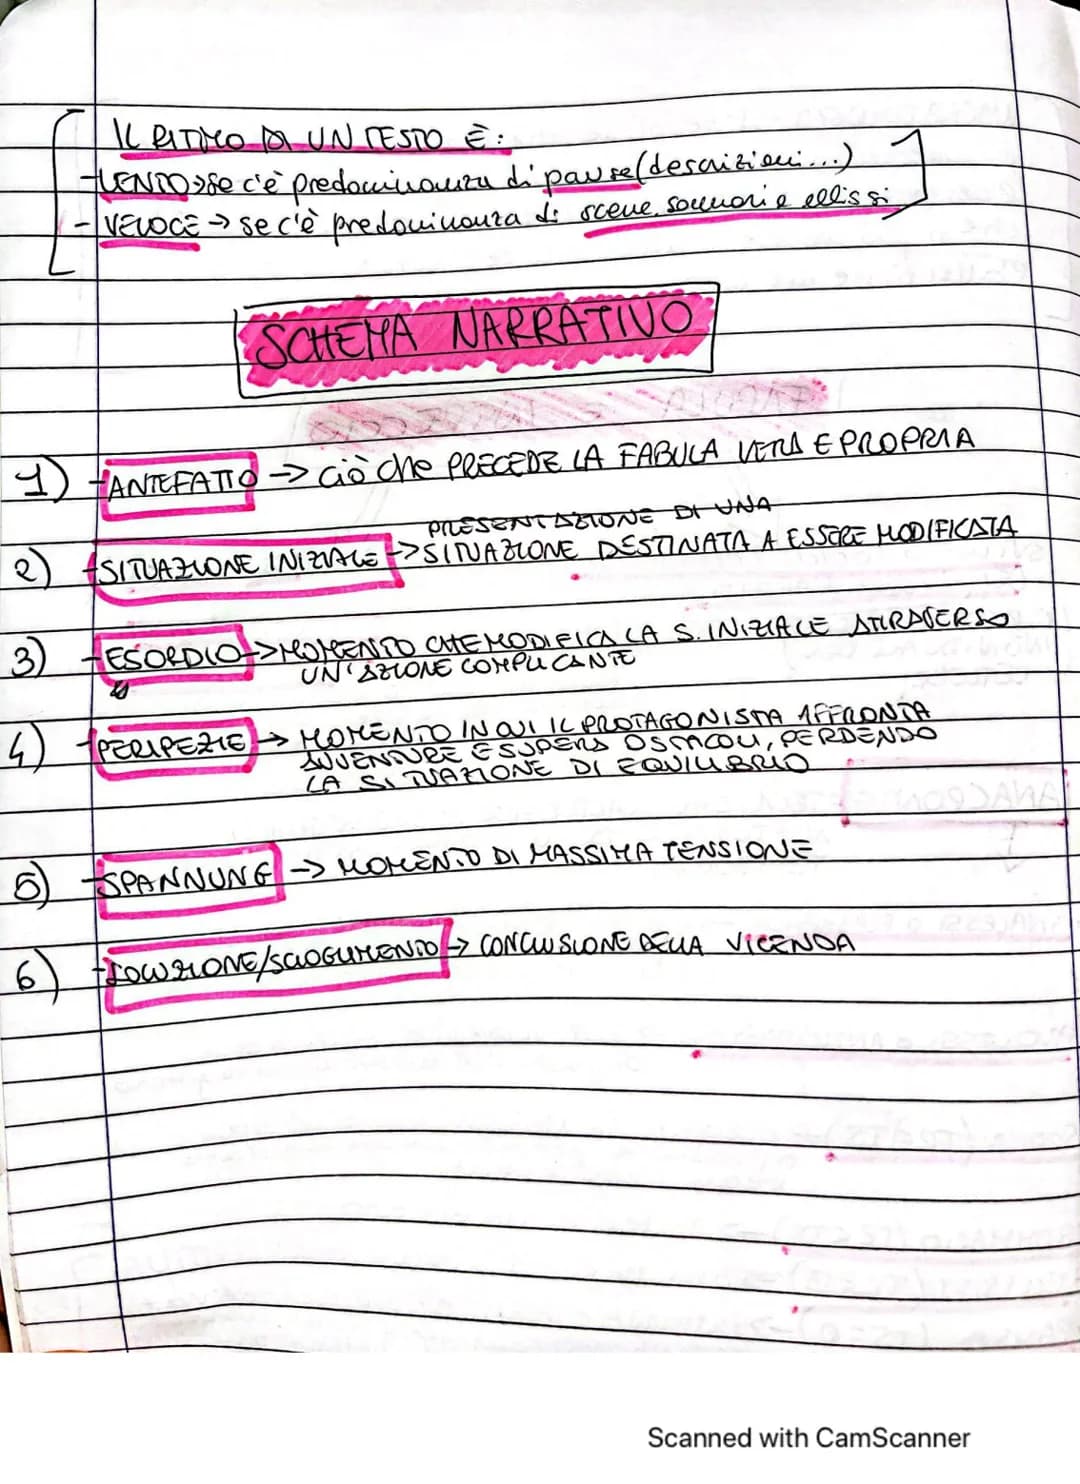 IL RITMO DI UN TESTO È:
-LENTO→se c'è predominanza di pause(descrizioni...)
- VELOCE → se c'è predominanza di scene, sommari e ellissi
SCHEMA NARRATIVO
1) -ANTEFATTO → ciò che PRECEDE LA FABULA VERA E PROPRIA
PRESENTAZIONE DI UNA
2) -SITUAZIONE INIZIALE -> SITUAZIONE DESTINATA A ESSERE MODIFICATA
3) -ESORDIO -> MOMENTO CHE MODIFICA LA S. INIZIALE ATTRAVERSO
UN'AZIONE COMPLICANTE
4) -PERIPEZIE → MOMENTO IN CUI IL PROTAGONISTA AFFRONTA
AVVENTURE E SUPERA OSTACOLI, PERDENDO
LA SITUAZIONE DI EQUILIBRIO
5) -SPANNUNG -> MOMENTO DI MASSIMA TENSIONE
6) -SOLUZIONE/SCIOGLIMENTO -> CONCLUSIONE DELLA VICENDA
Scanned with CamScanner